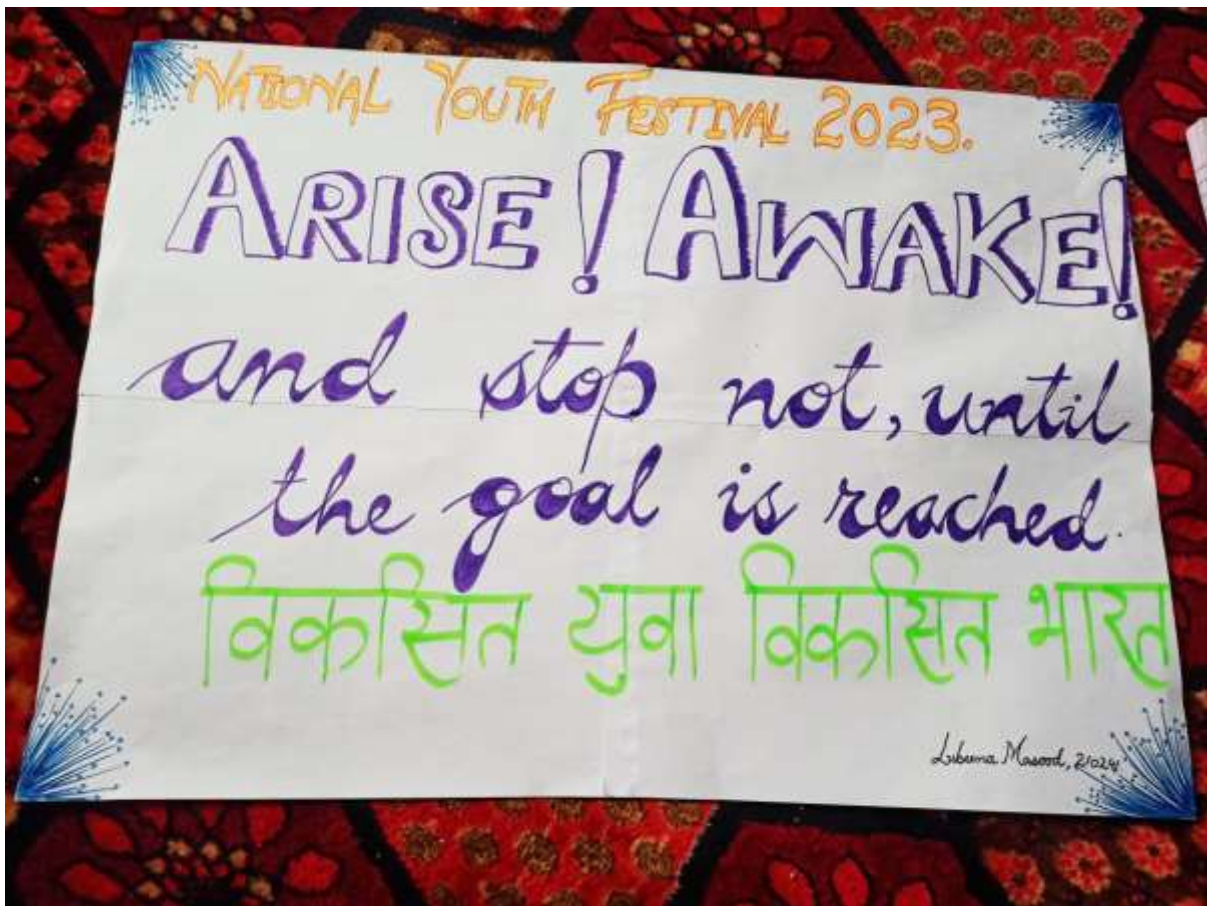 NATIONAL YOUTH FESTIVAL 2023.
ARISE! AWAKE!
and stop not, until
the goal is reached.
विकसित युवा विकसित भारत
Masood,